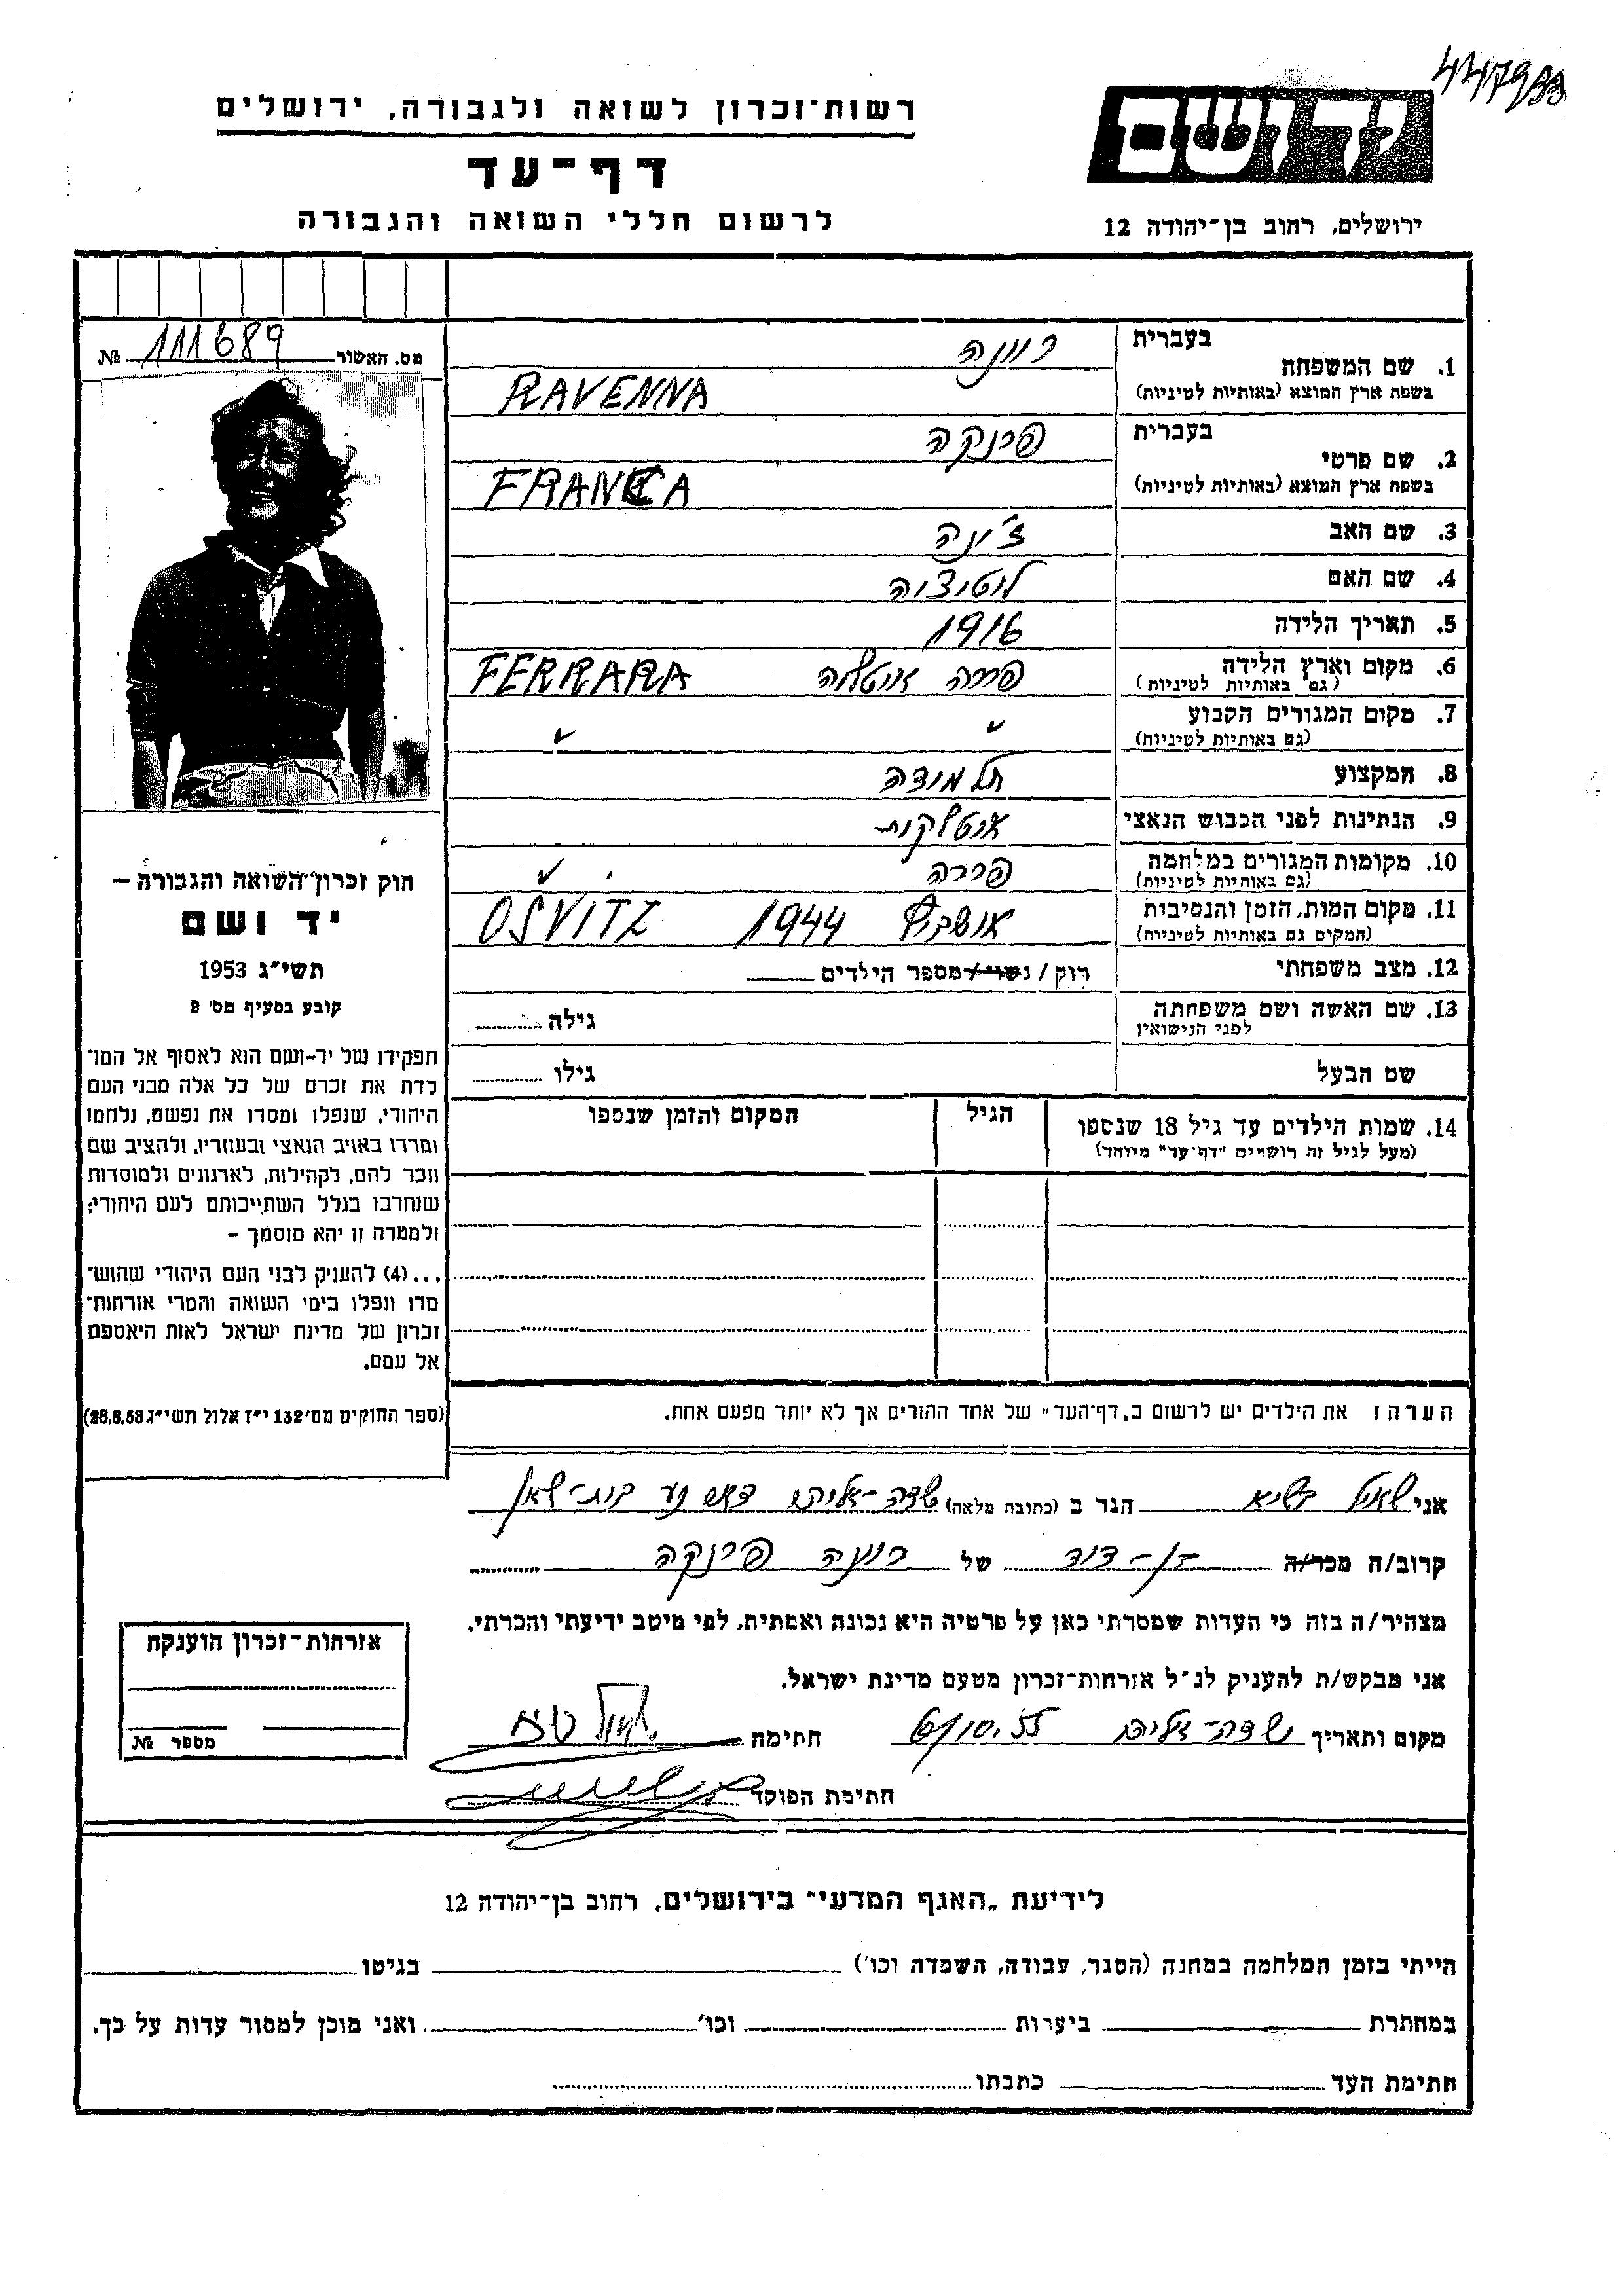 4447933
רשות־זכרון לשואה ולגבורה, ירושלים
יד ושם
דף־עד
לרשום חללי השואה והגבורה
ירושלים, רחוב בן־יהודה 12
מס. האשור 111689 №
1. שם המשפחה בעברית רוונה
בשפת ארץ המוצא (באותיות לטיניות) RAVENNA
2. שם פרטי בעברית פרנקה
בשפת ארץ המוצא (באותיות לטיניות) FRANCA
3. שם האב
4. שם האם
5. תאריך הלידה 1916
6. מקום וארץ הלידה פררה איטליה FERRARA
(גם באותיות לטיניות)
7. מקום המגורים הקבוע
(גם באותיות לטיניות)
8. המקצוע תלמידה
9. הנתינות לפני הכבוש הנאצי איטלקית
10. מקומות המגורים במלחמה פררה
(גם באותיות לטיניות)
11. מקום המות, הזמן והנסיבות אושביץ 1944 OSVITZ
(המקום גם באותיות לטיניות)
12. מצב משפחתי רוק / נשוי / מספר הילדים
13. שם האשה ושם משפחתה גילה
לפני הנישואין
שם הבעל גילו
14. שמות הילדים עד גיל 18 שנספו הגיל המקום והזמן שנספו
(מעל לגיל זה רושמים "דף־עד" מיוחד)
חוק זכרון־השואה והגבורה –
יד ושם
תשי״ג 1953
קובע בסעיף מס' 2
תפקידו של יד-ושם הוא לאסוף אל המו־
לדת את זכרם של כל אלה מבני העם
היהודי, שנפלו ומסרו את נפשם, נלחמו
ומרדו באויב הנאצי ובעוזריו, ולהציב שם
וזכר להם, לקהילות, לארגונים ולמוסדות
שנחרבו בגלל השתייכותם לעם היהודי;
ולמטרה זו יהא מוסמך –
...(4) להעניק לבני העם היהודי שהוש־
מדו ונפלו בימי השואה והמרי אזרחות־
זכרון של מדינת ישראל לאות היאספם
אל עמם.
(ספר החוקים מס' 132 י״ז אלול תשי״ג 28.8.53)
הערה: את הילדים יש לרשום ב„דף־העד" של אחד ההורים אך לא יותר מפעם אחת.
אני שאול הגר ב (כתובת מלאה) שדה-אליהו בית-שאן
קרוב/ה מכר/ה בן-דוד של רוונה פרנקה
מצהיר/ה בזה כי העדות שמסרתי כאן על פרטיה היא נכונה ואמתית, לפי מיטב ידיעתי והכרתי.
אני מבקש/ת להעניק לנ״ל אזרחות־זכרון מטעם מדינת ישראל.
מקום ותאריך שדה-אליהו חתימה
חתימת הפוקד
אזרחות־זכרון הוענקה
מספר №
לידיעת „האגף המדעי" בירושלים, רחוב בן־יהודה 12
הייתי בזמן המלחמה במחנה (הסגר, עבודה, השמדה וכו') בגיטו
במחתרת ביערות וכו' ואני מוכן למסור עדות על כך.
חתימת העד כתבתו